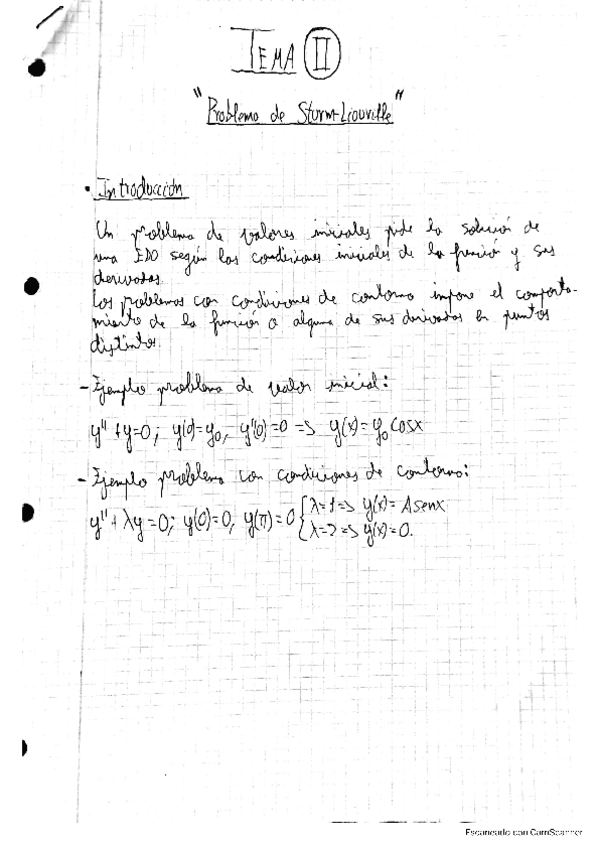 TEMA II
"Problema de Sturm-Liouville"
• Introducción
Un problema de valores iniciales pide la solución de
una EDO según las condiciones iniciales de la función y sus
derivadas.
Los problemas con condiciones de contorno impone el comporta-
miento de la función o alguna de sus derivadas en puntos
distintos.
- Ejemplo problema de valor inicial:
y'' + y = 0; y(0) = y₀, y'(0) = 0 => y(x) = y₀ cosx
- Ejemplo problema con condiciones de contorno:
y'' + λy = 0; y(0) = 0, y(π) = 0 { λ=1 => y(x) = A senx
λ=2 => y(x) = 0.
Escaneado con CamScanner